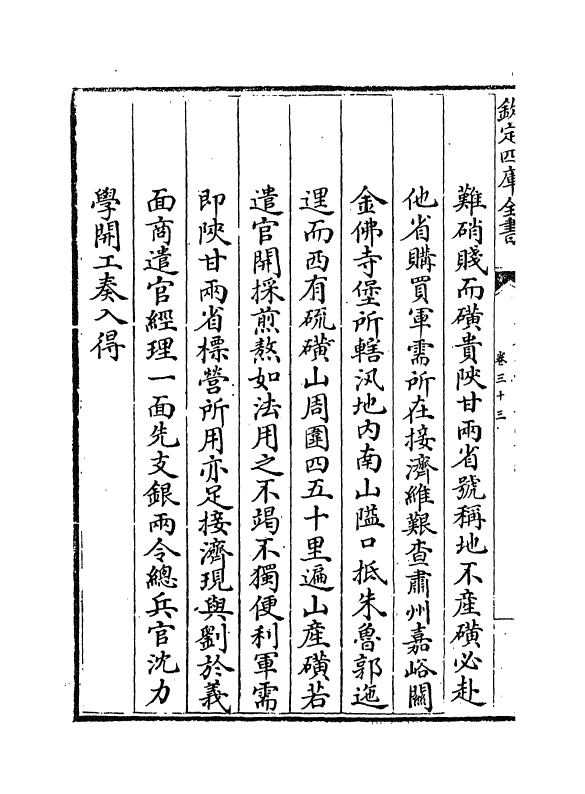 欽定四庫全書
卷三十三
難硝賤而磺貴陜甘兩省號稱地不産磺必赴
他省購買軍需所在接濟維艱查肅州嘉峪關
金佛寺堡所轄汛地内南山隘口抵朱魯郭迤
邐而西有硫磺山周圍四五十里遍山産磺若
遣官開採煎熬如法用之不竭不獨便利軍需
即陜甘兩省標營所用亦足接濟現與劉於義
面商遣官經理一面先支銀兩令總兵官沈力
學開工奏入得